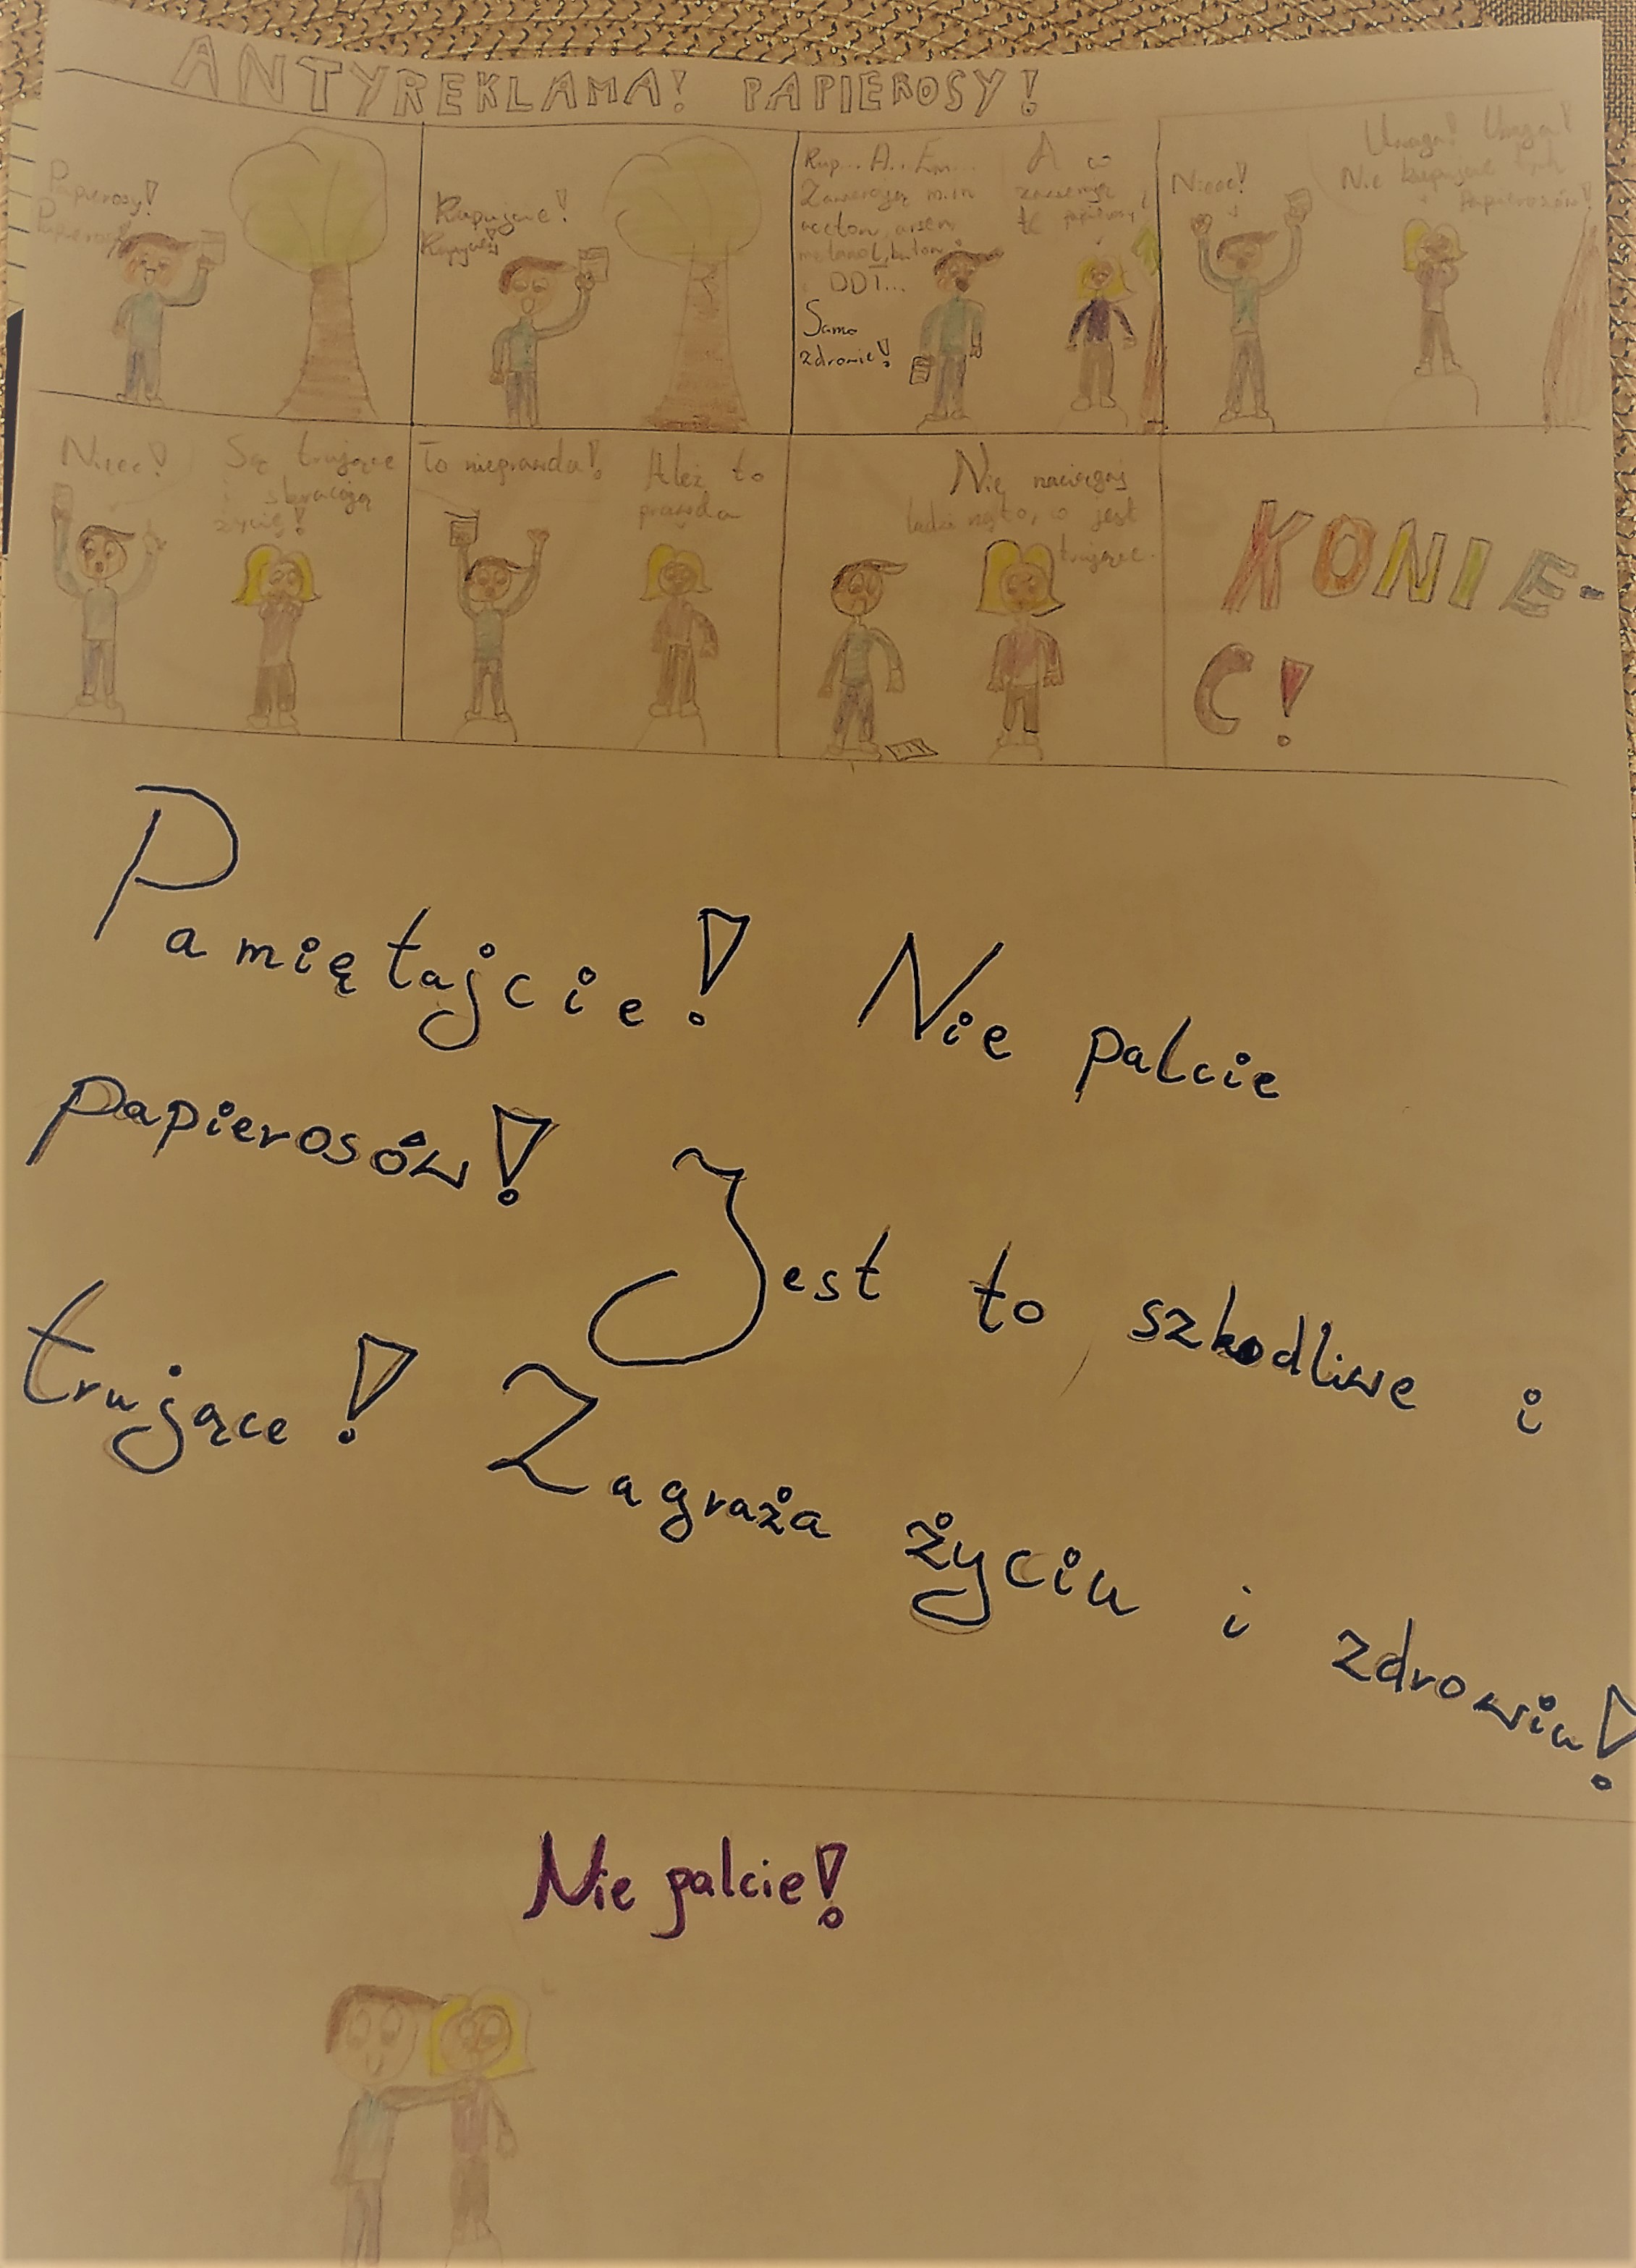 ANTYREKLAMA! PAPIEROSY!
Papierosy!
Papierosy!
Kupujcie!
Kupujcie!
Kup... A.. Em...
Zawierają m.in
aceton, arsen,
metanol, butan i
DDT...
Samo
zdrowie!
A co
zawierają
te papierosy?
Nieee!
Uwaga! Uwaga!
Nie kupujcie tych
papierosów!
Nieee!
Są trujące
i skracają
życie!
To nieprawda!
Ależ to
prawda
Nie naciągaj
ludzi na to, co jest
trujące.
KONIE-
C!
Pamiętajcie! Nie palcie
papierosów! Jest to szkodliwe i
trujące! Zagraża życiu i zdrowiu!
Nie palcie!